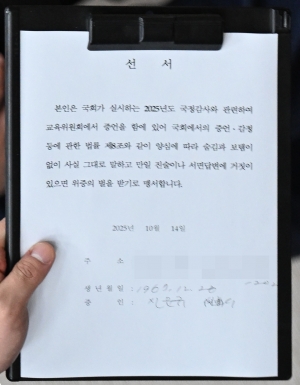 선 서
본인은 국회가 실시하는 2025년도 국정감사와 관련하여
교육위원회에서 증언을 함에 있어 국회에서의 증언·감정
등에 관한 법률 제8조와 같이 양심에 따라 숨김과 보탬이
없이 사실 그대로 말하고 만일 진술이나 서면답변에 거짓이
있으면 위증의 벌을 받기로 맹서합니다.
2025년 10월 14일
주 소
생년월일 :
증 인 :